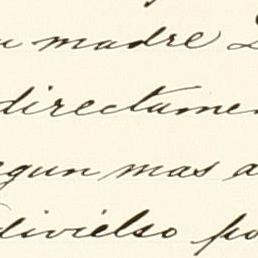 madre
directamen
egun mas a
divielso po